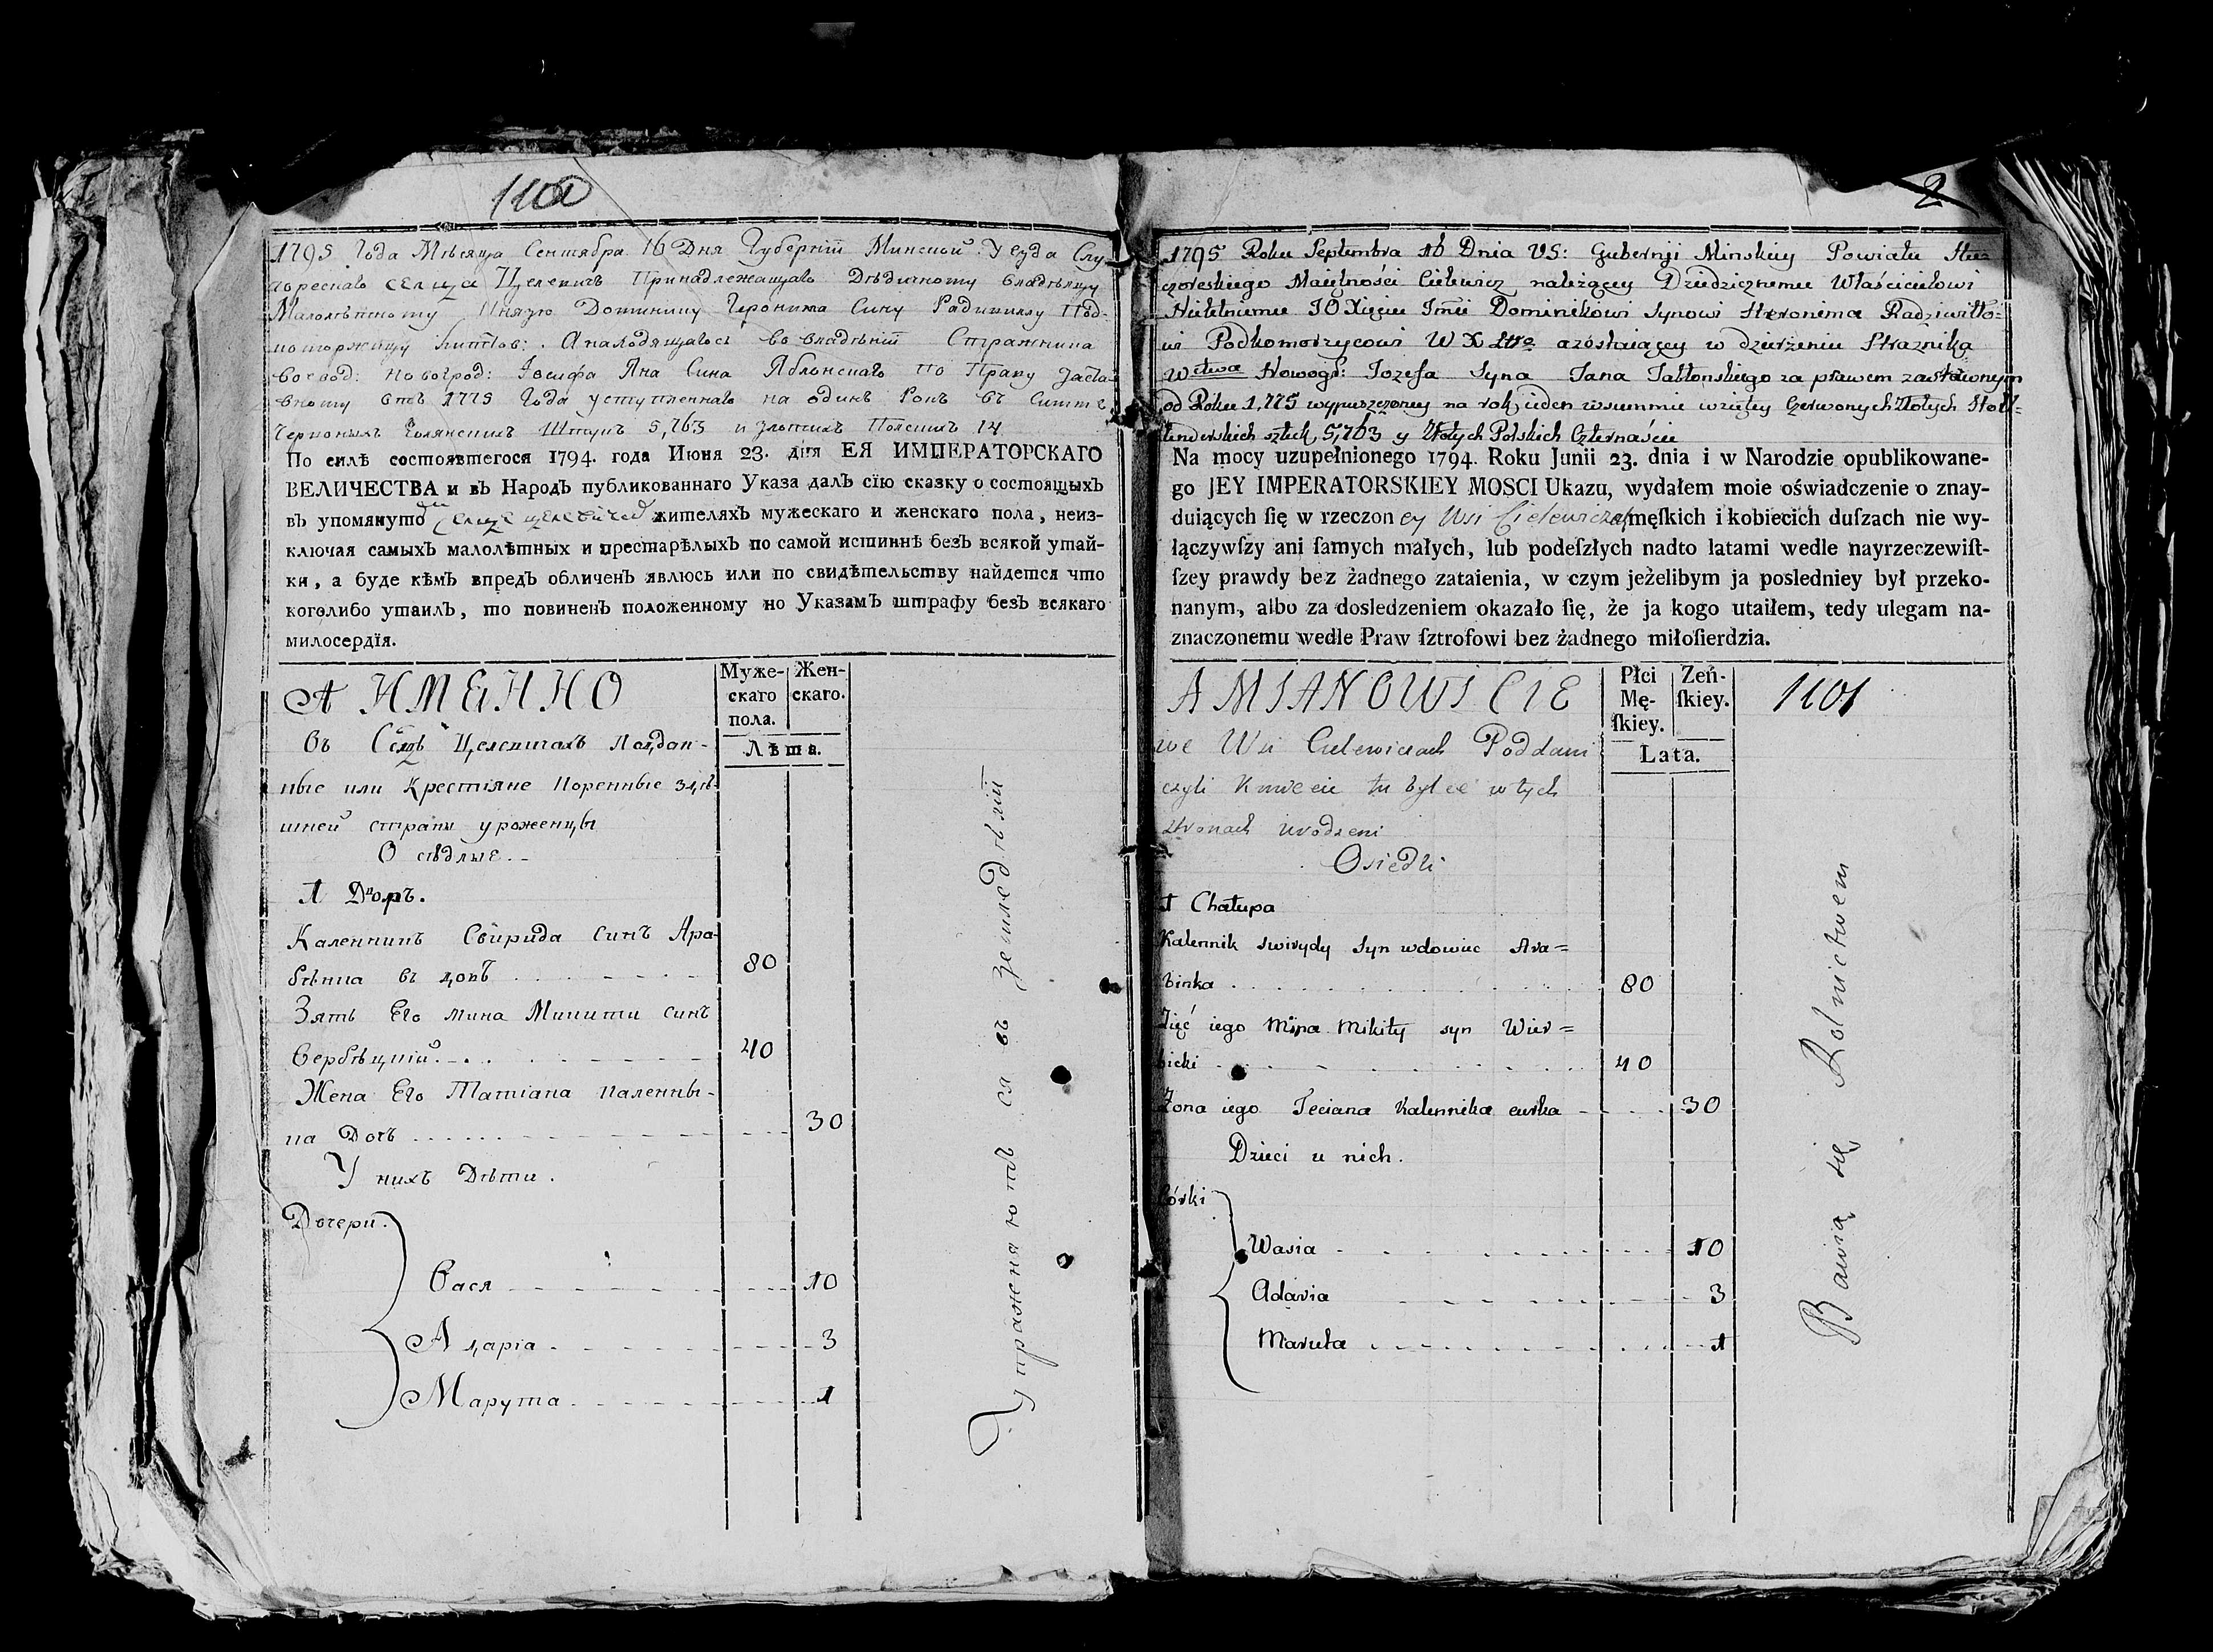 1100
1795 Года Мѣсяца Сентября 16 Дня Губерніи Минской Уезда Слу-
сельца Целевичъ Принадлежащаго Дѣдичному Владѣльцу
Малолѣтному Князю Доминику Геронима Сину Радивилу Под-
Анаходящагось Во владѣніи Стражника
Воевод: Новогрод: Іосифа Яна Сина Яблонскаго По Праву Заста-
вному 1775 Года уступленнаго на одинъ Рокъ въ Суммѣ
Червоныхъ Голянскихъ Штукъ 5,763 и Злотихъ Полскихъ 14
По силѣ состоявшегося 1794. года Июня 23. дня ЕЯ ИМПЕРАТОРСКАГО
ВЕЛИЧЕСТВА и въ Народъ публикованнаго Указа далъ сїю сказку о состоящыхъ
въ упомянуто сельце целевичах жителяхъ мужескаго и женскаго пола, неиз-
ключая самыхъ малолѣтныхъ и престарѣлыхъ по самой истиннѣ безъ всякой утай-
ки, а буде кѣмъ впредъ обличенъ явлюсь или по свидѣтельству найдется что
коголибо утаилъ, то повиненъ положенному по Указамъ штрафу безъ всякаго
милосердїя.
А ИМЕННО
Муже-
скаго
пола.
Жен-
скаго.
Лѣта.
Въ Селцѣ Целевичахъ Подан-
ные или Крестіяне Коренные здѣ-
шней страни уроженцы
Осѣдлые.
1 Дворъ.
Каленникъ Свирида Синъ Ара-
бѣнка вдовъ 80
Зять Его Мина Микити Синъ
Вербѣцкій 40
Жена Его Татіана Каленны-
ка Дочь 30
У нихъ Дѣти.
Дочери.
Вася 10
Адарія 3
Марута 1
Упражняются въ земледѣліи
2
1795 Roku Septembra 16 Dnia VS: Gubernji Minskiey Powiatu Słu-
czoreskiego Maiętności Cielewicz należącey Dziedzicznemu Właścicielowi
Nieletniemu JO Xięciu Jmći Dominikowi Synowi Heronima Radziwiłło-
wi Podkomorzycowi W X Litto azostaiącey w dzierżeniu Strażnika
Wctwa Nowogr: Jozefa Syna Jana Jabłonskiego za prawem zastawnym
od Roku 1,775 wypuszczoney na rok ieden wsummie wzietey Czerwonych Złotych Holl-
lenderskich sztuk 5,763 y Złotych Polskich Czternaście
Na mocy uzupełnionego 1794. Roku Junii 23. dnia i w Narodzie opublikowane-
go JEY IMPERATORSKIEY MOSCI Ukazu, wydałem moie oświadczenie o znay-
duiących ſię w rzeczoney Wsi Cielewiczach męſkich i kobiecich duſzach nie wy-
łączywſzy ani ſamych małych, lub podeſzłych nadto latami wedle nayrzeczewiſt-
ſzey prawdy bez żadnego zataienia, w czym jeżelibym ja posledniey był przeko-
nanym, albo za dosledzeniem okazało ſię, że ja kogo utaiłem, tedy ulegam na-
znaczonemu wedle Praw ſztrofowi bez żadnego miłoſierdzia.
A MIANOWICIE
Płci
Mę-
ſkiey.
Zeń-
ſkiey.
Lata.
1101
we Wsi Cielewiczach Poddani
czyli Kmiecie tu bylce wtych
stronach urodzeni
Osiedli
1 Chałupa
Kalennik Swirydy Syn wdowiec Ara=
binka 80
Zięć iego Mina Mikity syn Wier=
bicki 40
Żona iego Teciana Kalennika curka 30
Dzieci u nich.
Córki
Wasia 10
Adaria 3
Maruta 1
Bawią się Rolnictwem